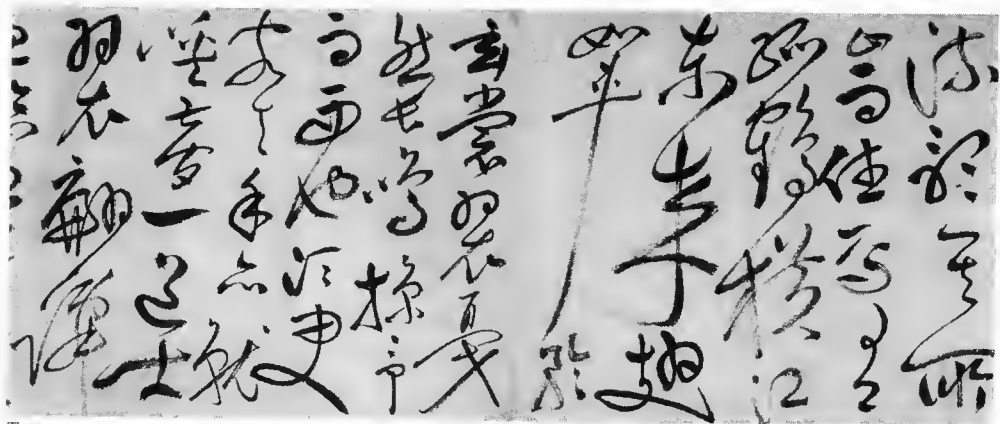 流聽其所
止而休焉
孤鶴橫江
東來翅
如車輪
玄裳羽衣戛
然長鳴掠予
舟而西也須臾
客去予亦就
睡夢一道士
羽衣翩躚